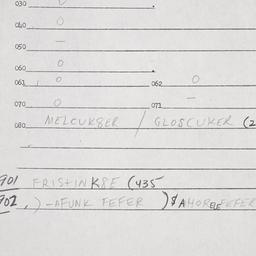 030 O
040 O
050 —
060 O
061 O 062 O
070 O 071 —
080 MELCUK8ER / GLOSCUKER (2
901 FRISTINK8E (435
902, )-AFUNK FEFER )$AHORELEFEFER